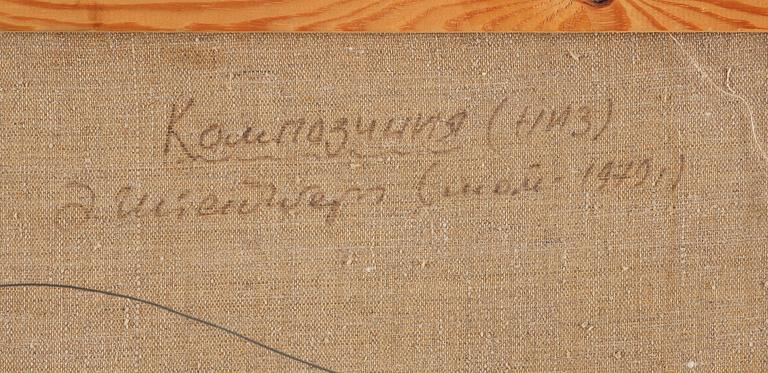 Композиция (низ)
Э. Штейнберг 1979 г.)